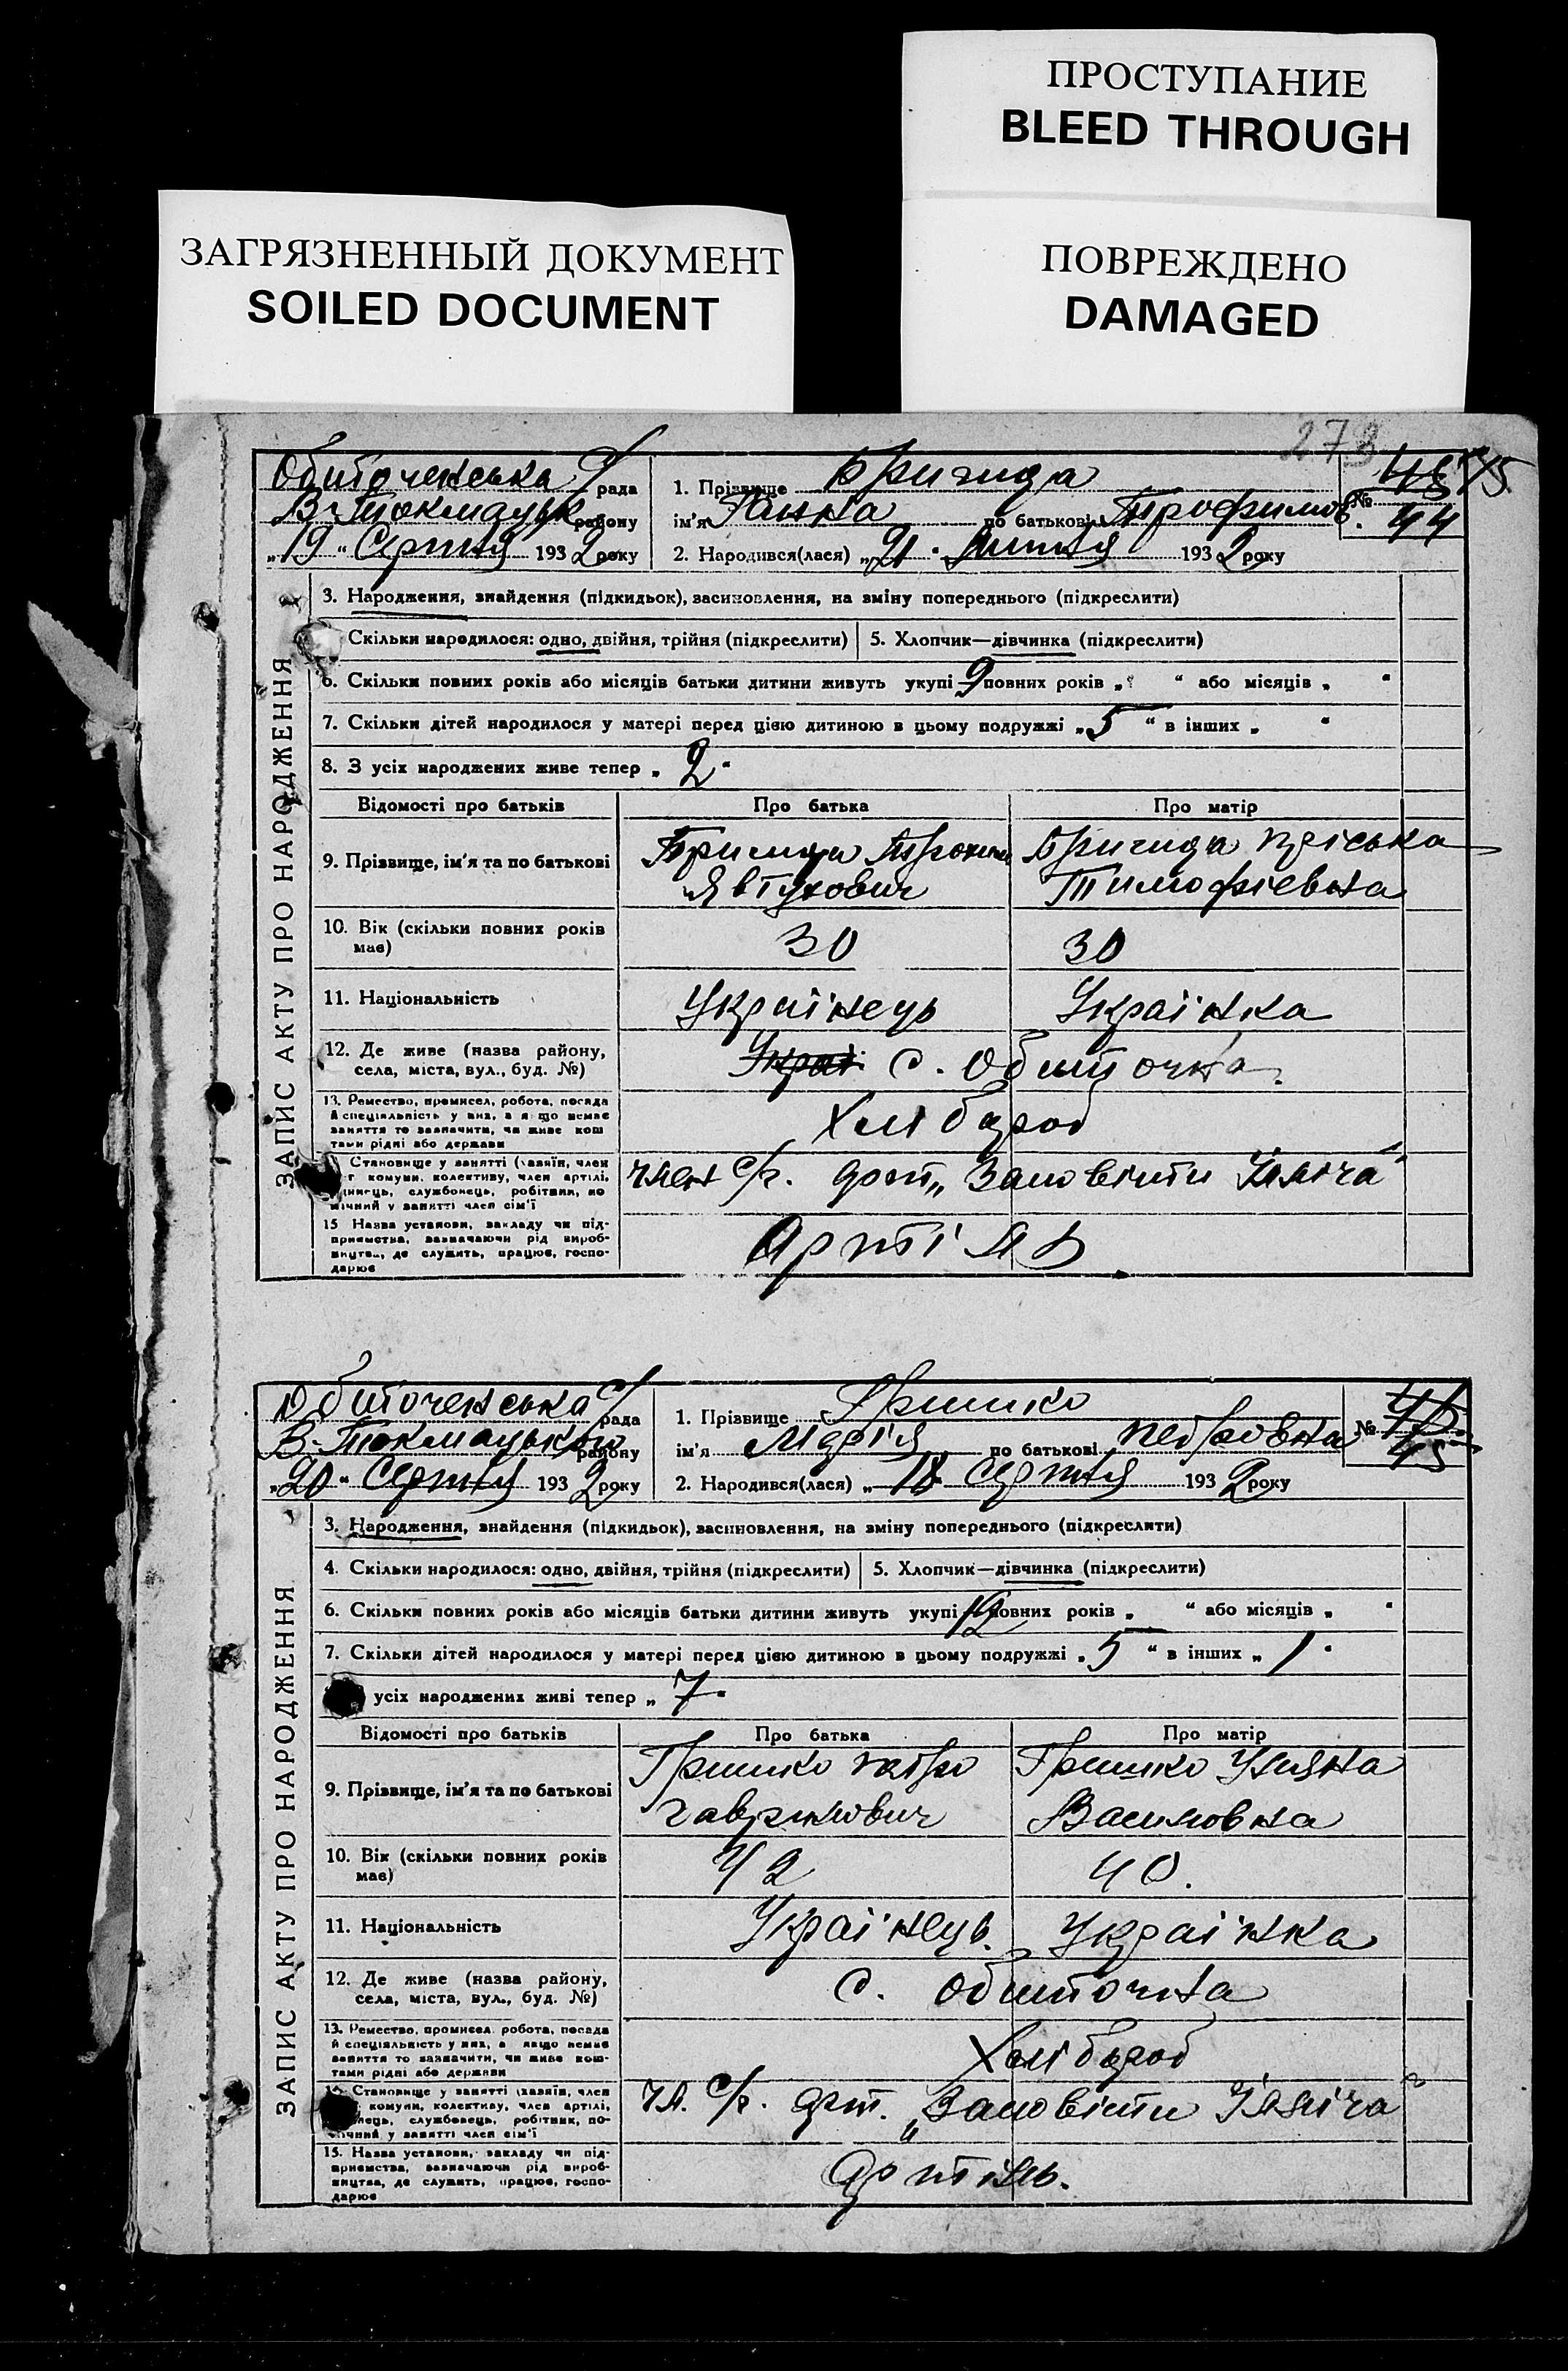 ПРОСТУПАНИЕ
BLEED THROUGH
ЗАГРЯЗНЕННЫЙ ДОКУМЕНТ
SOILED DOCUMENT
ПОВРЕЖДЕНО
DAMAGED
278
ЗАПИС АКТУ ПРО НАРОДЖЕННЯ
Обиточенська С/рада
В-Токмацьк району
„19“ Серпня 1932 року
1. Прізвище Бригида
ім'я Ганна по батькові Трофимов.
№ 44
2. Народився(лася) „21“ Липня 1932 року
3. Народження, знайдення (підкидьок), засиновлення, на зміну попереднього (підкреслити)
Скільки народилося: одно, двійня, трійня (підкреслити) 5. Хлопчик—дівчинка (підкреслити)
6. Скільки повних років або місяців батьки дитини живуть укупі 9 повних років „ “ або місяців „ “
7. Скільки дітей народилося у матері перед цією дитиною в цьому подружжі „5“ в інших „ “
8. З усіх народжених живе тепер „2“
Відомості про батьків Про батька Про матір
9. Прізвище, ім'я та по батькові
Явтухович
Бригида Пріська
Тимофіевна
10. Вік (скільки повних років має) 30 30
11. Національність Українець Українка
12. Де живе (назва району, села, міста, вул., буд. №) Украї. с. Обиточна.
13. Ремество, промисел, робота, посада й спеціяльність у них, а якщо немає заняття то зазначити, чи живе коштами рідні або держави
Хлібороб
Становище у занятті (хазяїн, член комуни, колективу, член артілі, службовець, робітник, помічний у занятті член сім'ї
член с/г. арт. „Заповіти Ілліча“
15 Назва установи, закладу чи підприємства, зазначаючи рід виробництва, де служить, працює, господарює
Артіль
ЗАПИС АКТУ ПРО НАРОДЖЕННЯ
Обиточенська С/рада
В-Токмацького району
„20“ Серпня 1932 року
1. Прізвище Гришко
ім'я Марія по батькові Петровна
№ 45
2. Народився(лася) „18 Серпня 1932 року
3. Народження, знайдення (підкидьок), засиновлення, на зміну попереднього (підкреслити)
4. Скільки народилося: одно, двійня, трійня (підкреслити) 5. Хлопчик—дівчинка (підкреслити)
6. Скільки повних років або місяців батьки дитини живуть укупі 12 повних років „ “ або місяців „ “
7. Скільки дітей народилося у матері перед цією дитиною в цьому подружжі „5“ в інших „1“
усіх народжених живі тепер „7“
Відомості про батьків Про батька Про матір
9. Прізвище, ім'я та по батькові
Гришко Петро
Гаврилович
Гришко Уляна
Василовна
10. Вік (скільки повних років має) 42 40.
11. Національність Українець. Українка
12. Де живе (назва району, села, міста, вул., буд. №) с. Обиточна
13. Ремество, промисел, робота, посада й спеціяльність у них, а якщо немає заняття то зазначити, чи живе коштами рідні або держави
Хлібороб
Становище у занятті (хазяїн, член комуни, колективу, член артілі, службовець, робітник, помічний у занятті член сім'ї
чл. с/г. арт. „Заповіти Ілліча“
15. Назва установи, закладу чи підприємства, зазначаючи рід виробництва, де служить, працює, господарює
Артіль.